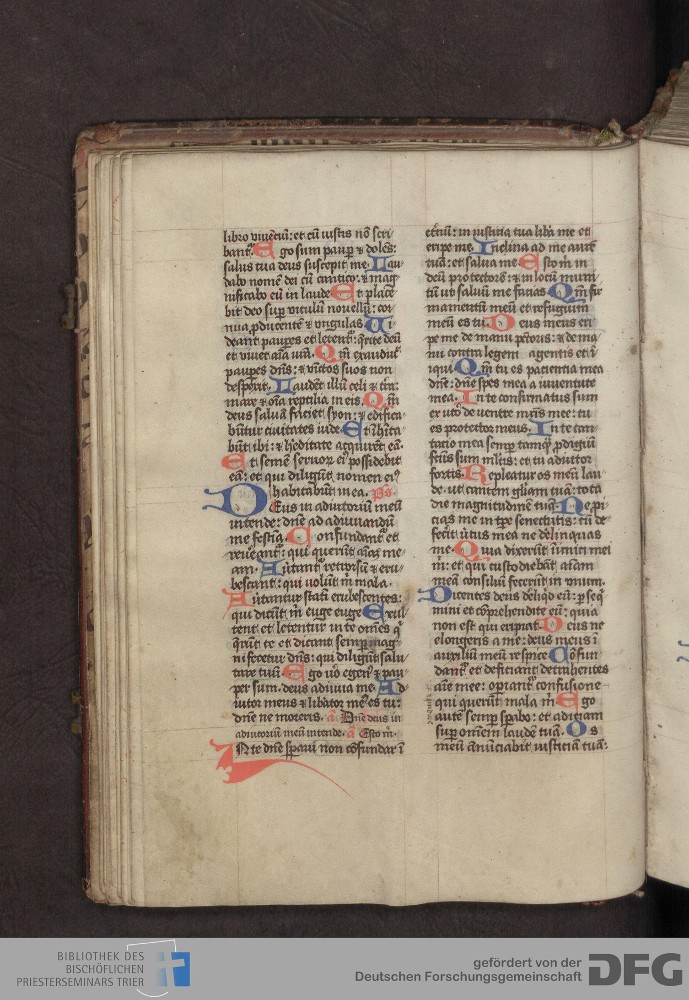 libro viuenciũ: et cũ iustis nõ scri
bant᷑. Ego sum paup̱ ⁊ dolẽs:
salus tua deus suscepit me. Lau
dabo nomẽ dei cũ cantico: ⁊ mag
nificabo eũ in laude. Et place
bit deo sup̱ vitulũ nouellũ: cor
nua ꝓducentẽ ⁊ vngulas. Ui
deant paup̱es et letent᷑: q̃rite deũ
et viuet aĩa vr̃a. Qm̃ exaudiuit
paup̱es dñs: ⁊ vĩctos suos non
despexit. Laudẽt illũ celi ⁊ t̃ra:
mare ⁊ oĩa reptilia in eis. Qm̃
deus saluã faciet syon: ⁊ edifica
bũtur ciuitates iude. Et ĩhĩta
bũt ibi: ⁊ h̾editate acquirẽt eã.
Et semẽ seruoꝝ eiꝰ possidebit
eã: et qui diligũt nomen eiꝰ
habitabũt in ea. Ps.
Deus in adiutoriũ meũ
intende: dñe ad adiuuandũ
me festina. Confundant᷑ et
reuerẽant᷑: qui querũt aĩas me
am. Au̾tant᷑ retrorsũ ⁊ eru
bescant: qui volũt m̃ mala.
Au̾tantur statĩ erubescentes:
qui dicũt m̃ euge euge. Exul
tent et letentur in te om̃es q̃
q̃rũt te et dicant semp̱ mag
nificetur dñs: qui diligũt salu
tare tuũ. Ego vo̾ egenꝰ ⁊ pau
per sum. deus adiuua me. Ad
iutor meus et libãtor meꝰ es tu:
dñe ne moreris. a̾. Dñe deus in
adiutoriũ meũ intende. a̾. Esto m̃.
IN te dñe sp̱aui non cõfundar ĩ
et̾nũ: in iusticia tua lib̾a me et
eripe me. Inclina ad me aurẽ
tuã: et salua me. Esto m̃ in
deũ protectorẽ: ⁊ in locũ muni
tũ ut saluũ me facias. Qm̃ fir
mamentũ meũ et refugiũm
meũ es tu. Deus meus eri
pe me de manu pctõris: ⁊ de ma
nu contra legem agentis et ĩ
iqui. Qm̃ tu es paciencia mea
dñe: dñe spes mea a iuuentute
mea. In te confirmatus sum
ex uto̾ de ventre mr̃is mee: tu
es protector meus. In te can
tatio mea semp̱ tamq̃ ꝓdigiũ
fcũs sum ml̃tis: et tu adiutor
fortis. Repleatur os meũ lau
de. ut cantem gl̃iam tuã: tota
die magnitudinẽ tuã. Ne ꝓi
cias me in tp̃e senectutis: cũ de
fec̾it u̾tus mea ne de̾linquas
me. Quia dixerũt ĩimici mei
m̃: et qui custodiebãt aĩam
meã consiliũ fecerũt in vnum.
Dicentes deus de̾liq̃d eũ: p̱seq̃
mini et cõprehendite eũ: quia
non est qui eripiat. Deus ne
elongeris a me: deus meus ĩ
auxiliũ meũ respice. Cõfun
dant᷑ et deficiant detrahentes
aĩe mee: op̱iant᷑ confusione
qui querũt mala m̃. Ego
autẽ semp̱ sp̱abo: et adiciam
sup̱ om̃em laudẽ tuã. Os
meũ ãnũciabit iusticiã tuã:
BIBLIOTHEK DES
BISCHÖFLICHEN
PRIESTERSEMINARS TRIER
gefördert von der
Deutschen Forschungsgemeinschaft
DFG